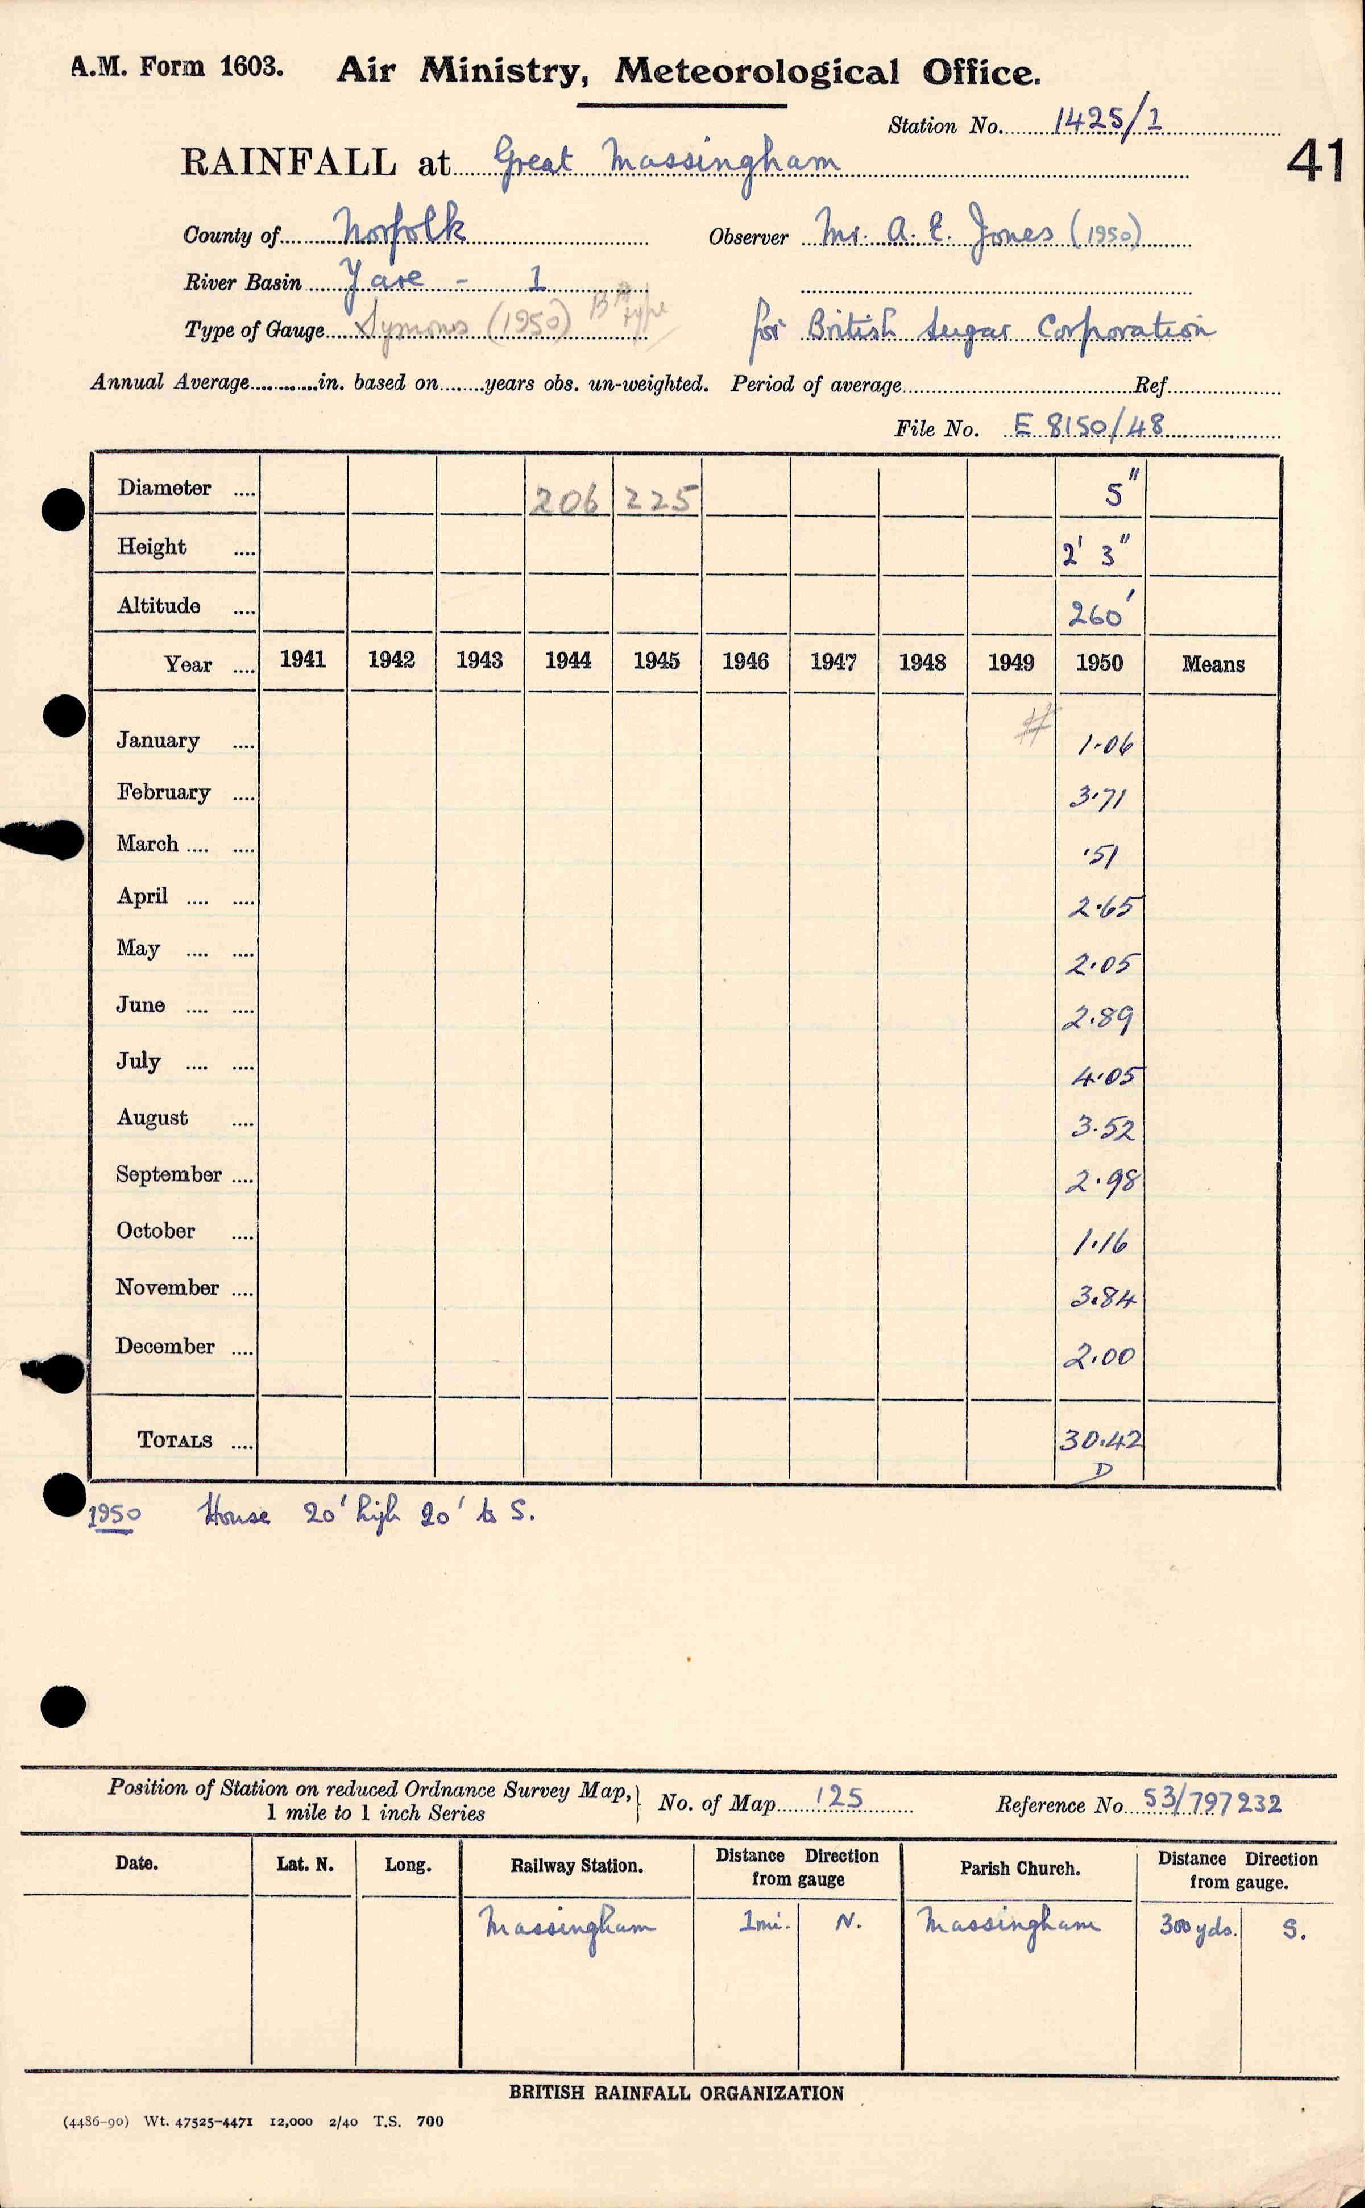 A.M. Form 1603. Air Ministry, Meteorological Office.
Station No. 1425/1
41
RAINFALL at Great Massingham
County of Norfolk Observer Mr. A. E. Jones (1950)
River Basin Yare - 1
Type of Gauge Symons (1950) type for British Sugar Corporation
Annual Average in. based on years obs. un-weighted. Period of average Ref
File No. E 8150/48
Diameter 206 225 5"
Height 2' 3"
Altitude 260'
Year 1941 1942 1943 1944 1945 1946 1947 1948 1949 1950 Means
January # 1.06
February 3.71
March .51
April 2.65
May 2.05
June 2.89
July 4.05
August 3.52
September 2.98
October 1.16
November 3.84
December 2.00
TOTALS 30.42
D
1950 House 20' high 20' to S.
Position of Station on reduced Ordnance Survey Map, No. of Map 125 Reference No 53/797232
1 mile to 1 inch Series
Date. Lat. N. Long. Railway Station. Distance Direction from gauge Parish Church. Distance Direction from gauge.
Massingham 1 mi. N. Massingham 300 yds. S.
BRITISH RAINFALL ORGANIZATION
(4486-90) Wt. 47525-4471 12,000 2/40 T.S. 700